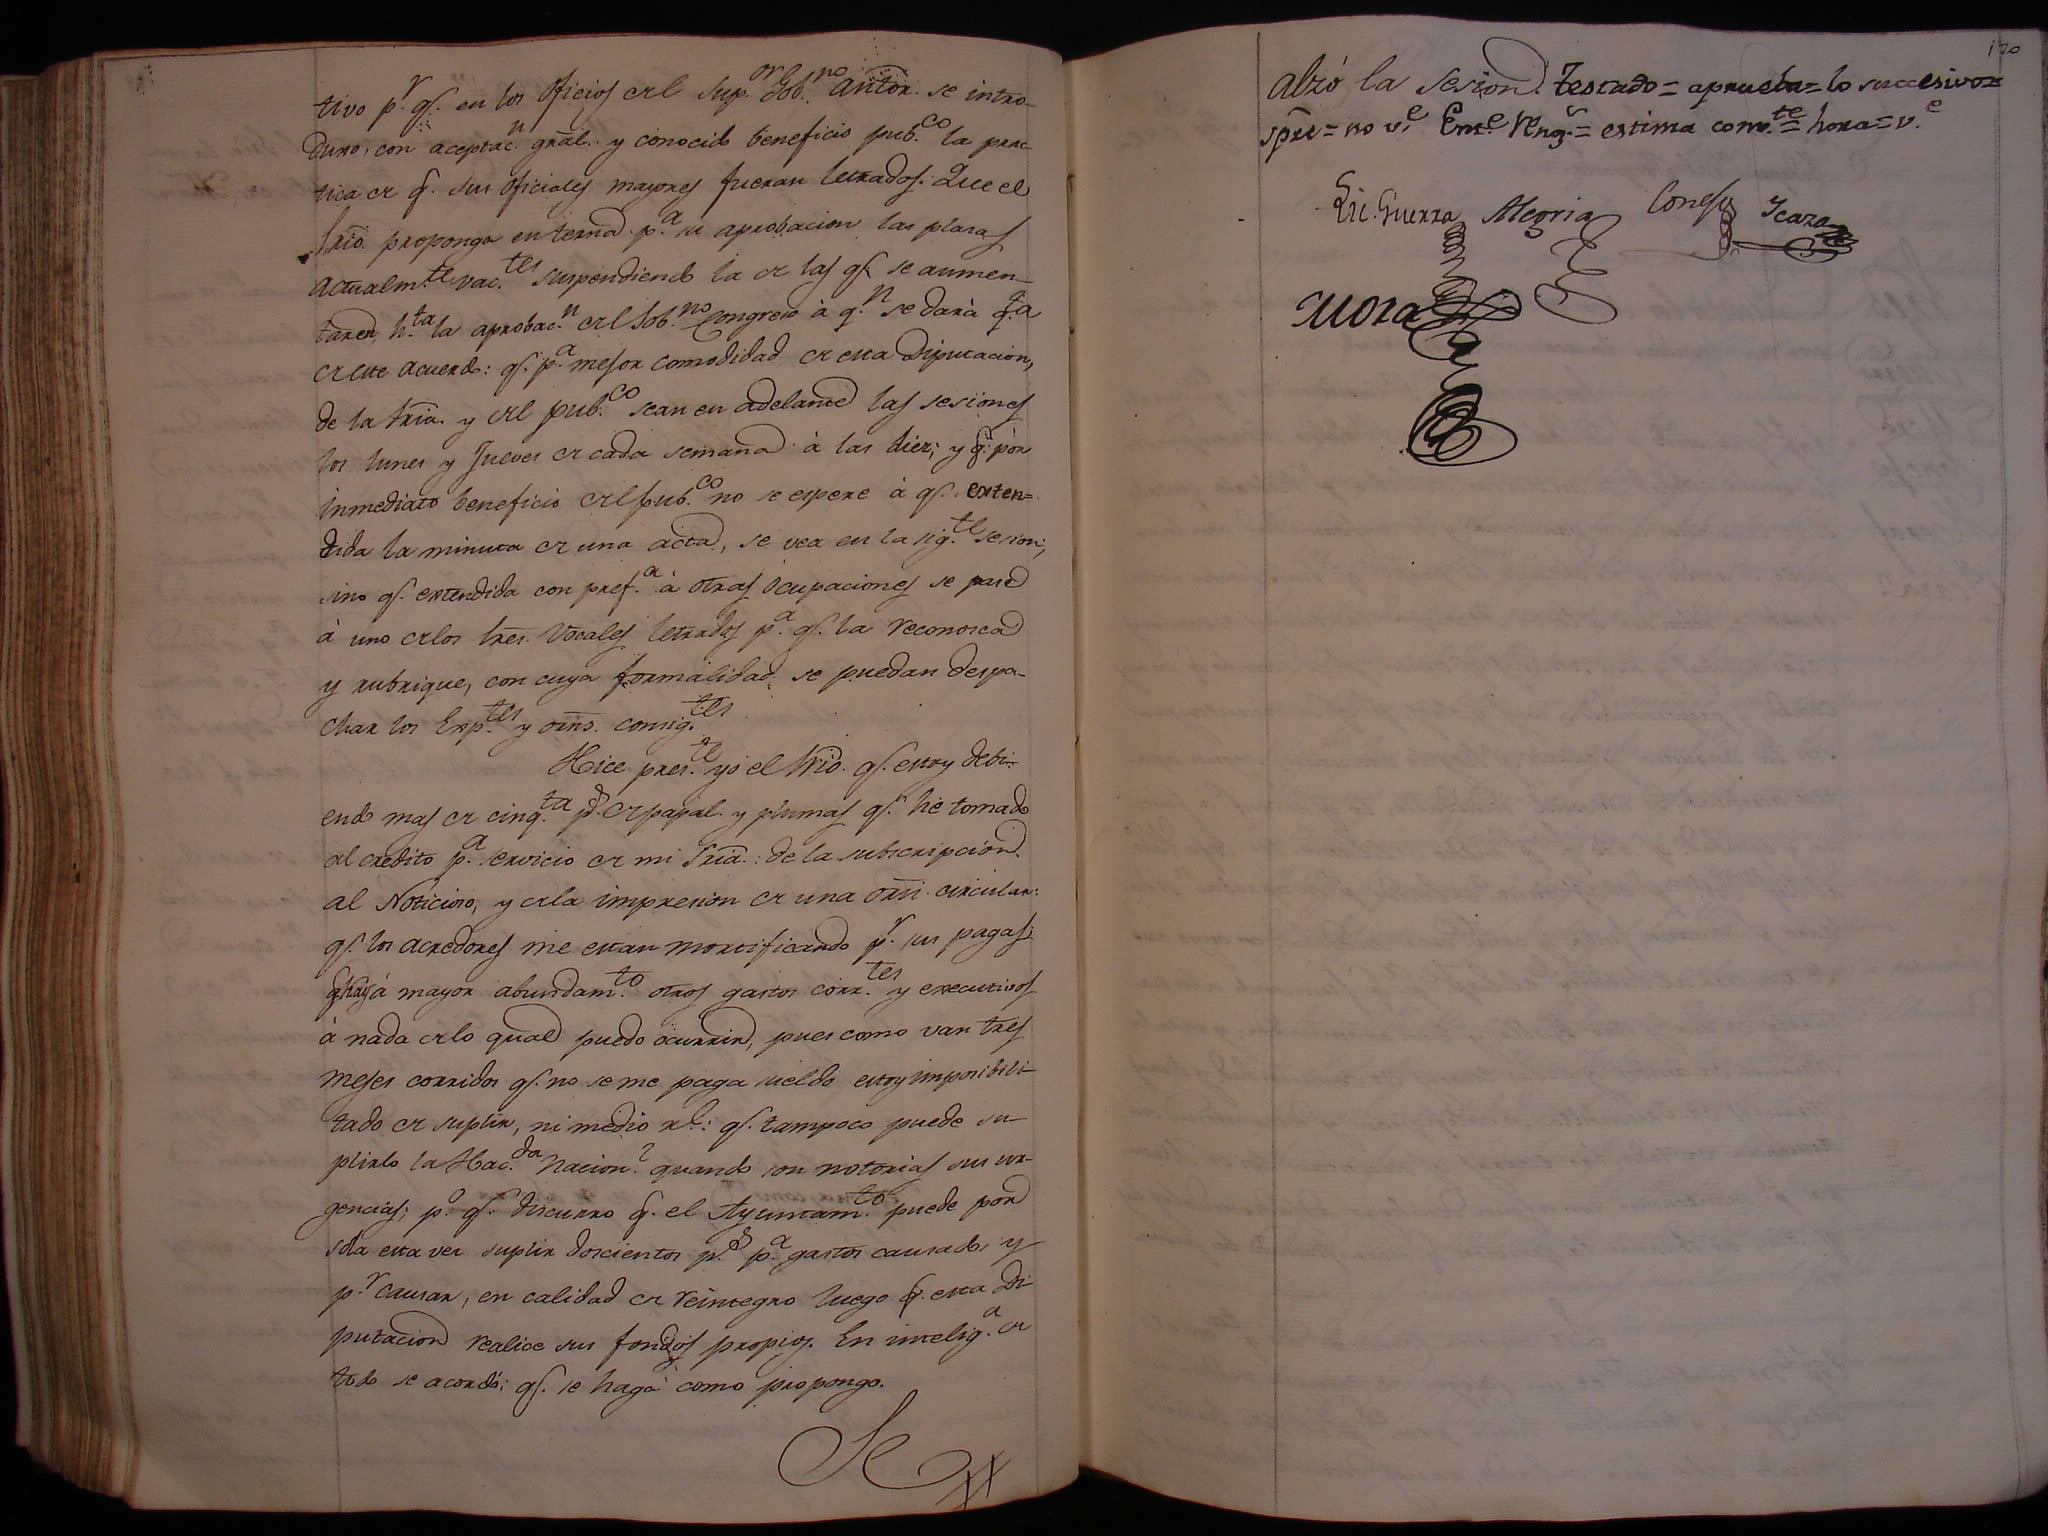 tivo p.r q.e en los Oficios del Sup.or Gob.no antor. se intro-
duxo, con aceptac.n gral. y conocido beneficio pub.co la prac-
tica de q.e sus oficiales mayores fueran letrados: Que el
Srio. proponga en terna p.a su aprobacion las plasas
actualm.te vac.tes suspendiendo la de las q.e se aumen-
taren h.ta la aprobac.n del Sob.no Congreso à q.n se darà q.ta
de este acuerdo: q.e p.a mejor comodidad de esta Diputacion,
de la Sria. y del pub.co sean en adelante las sesiones
los lunes y Jueves de cada semana à las diez; y q.e por
inmediato beneficio del pub.co no se espere à q.e exten=
dida la minuta de una acta, se vea en la sig.te sesion;
sino q.e extendida con pref.a à otras ocupaciones se pase
à uno de los tres Vocales letrados p.a q.e la reconosca
y rubrique, con cuya formalidad se puedan despa-
char los Exp.tes y orns. consig.tes
Hice pres.te yo el Srio. q.e estoy debi-
endo mas de cinq.ta p.s de papal y plumas q.e he tomado
al credito p.a servicio de mi Sria.: de la subscripcion
al Noticioso, y de la impresion de una orn. circular:
q.e los acredores me estan mortificando p.r sus pagas:
q.e hay à mayor abundam.to otros gastos corr.tes y executivos
à nada de lo qual puedo ocurrir, pues como van tres
meses corridos q.e no se me paga sueldo estoy imposibili-
tado de suplir, ni medio r.l: q.e tampoco puede su-
plirlo la Hac.da Nacion.l quando son notorias sus ur-
gencias; p.o q.e discurro q.e el Ayuntam.to puede por
sola esta ves suplir doscientos p.s p.a gastos causados y
p.r causar, en calidad de reintegro luego q.e esta Di-
putacion realice sus fondos propios. En intelig.a de
todo se acordó: q.e se haga como propongo.
Se
170
alzó la sesion. Testado = aprueba = lo succesivo =
spre = no v.e Ent.e Reng.s = estima conv.te = hora = v.e
Lic. Guerra Alegria Conejo Icaza
Mora